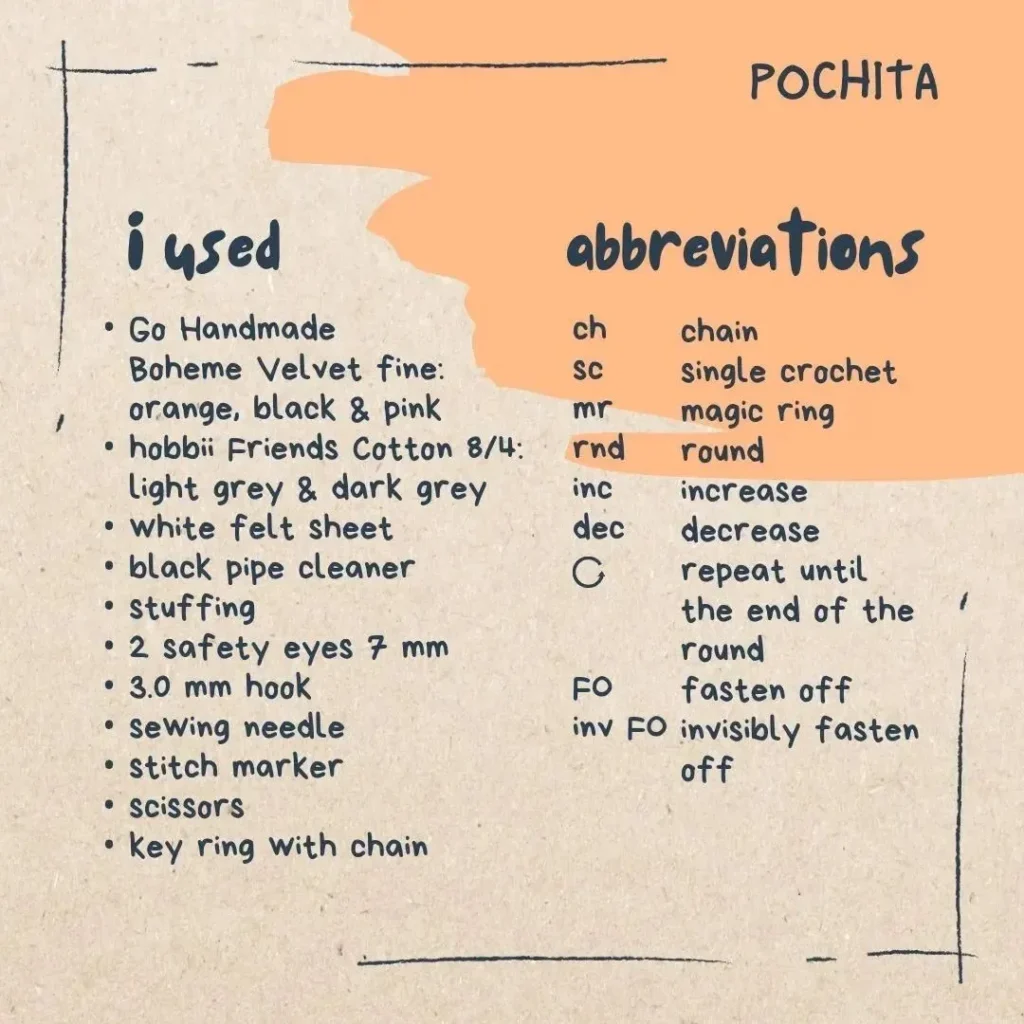 POCHITA
i used
• Go Handmade
Boheme Velvet fine:
orange, black & pink
• hobbii Friends Cotton 8/4:
light grey & dark grey
• white felt sheet
• black pipe cleaner
• stuffing
• 2 safety eyes 7 mm
• 3.0 mm hook
• sewing needle
• stitch marker
• scissors
• key ring with chain
abbreviations
ch chain
sc single crochet
mr magic ring
rnd round
inc increase
dec decrease
repeat until
the end of the
round
FO fasten off
inv FO invisibly fasten
off